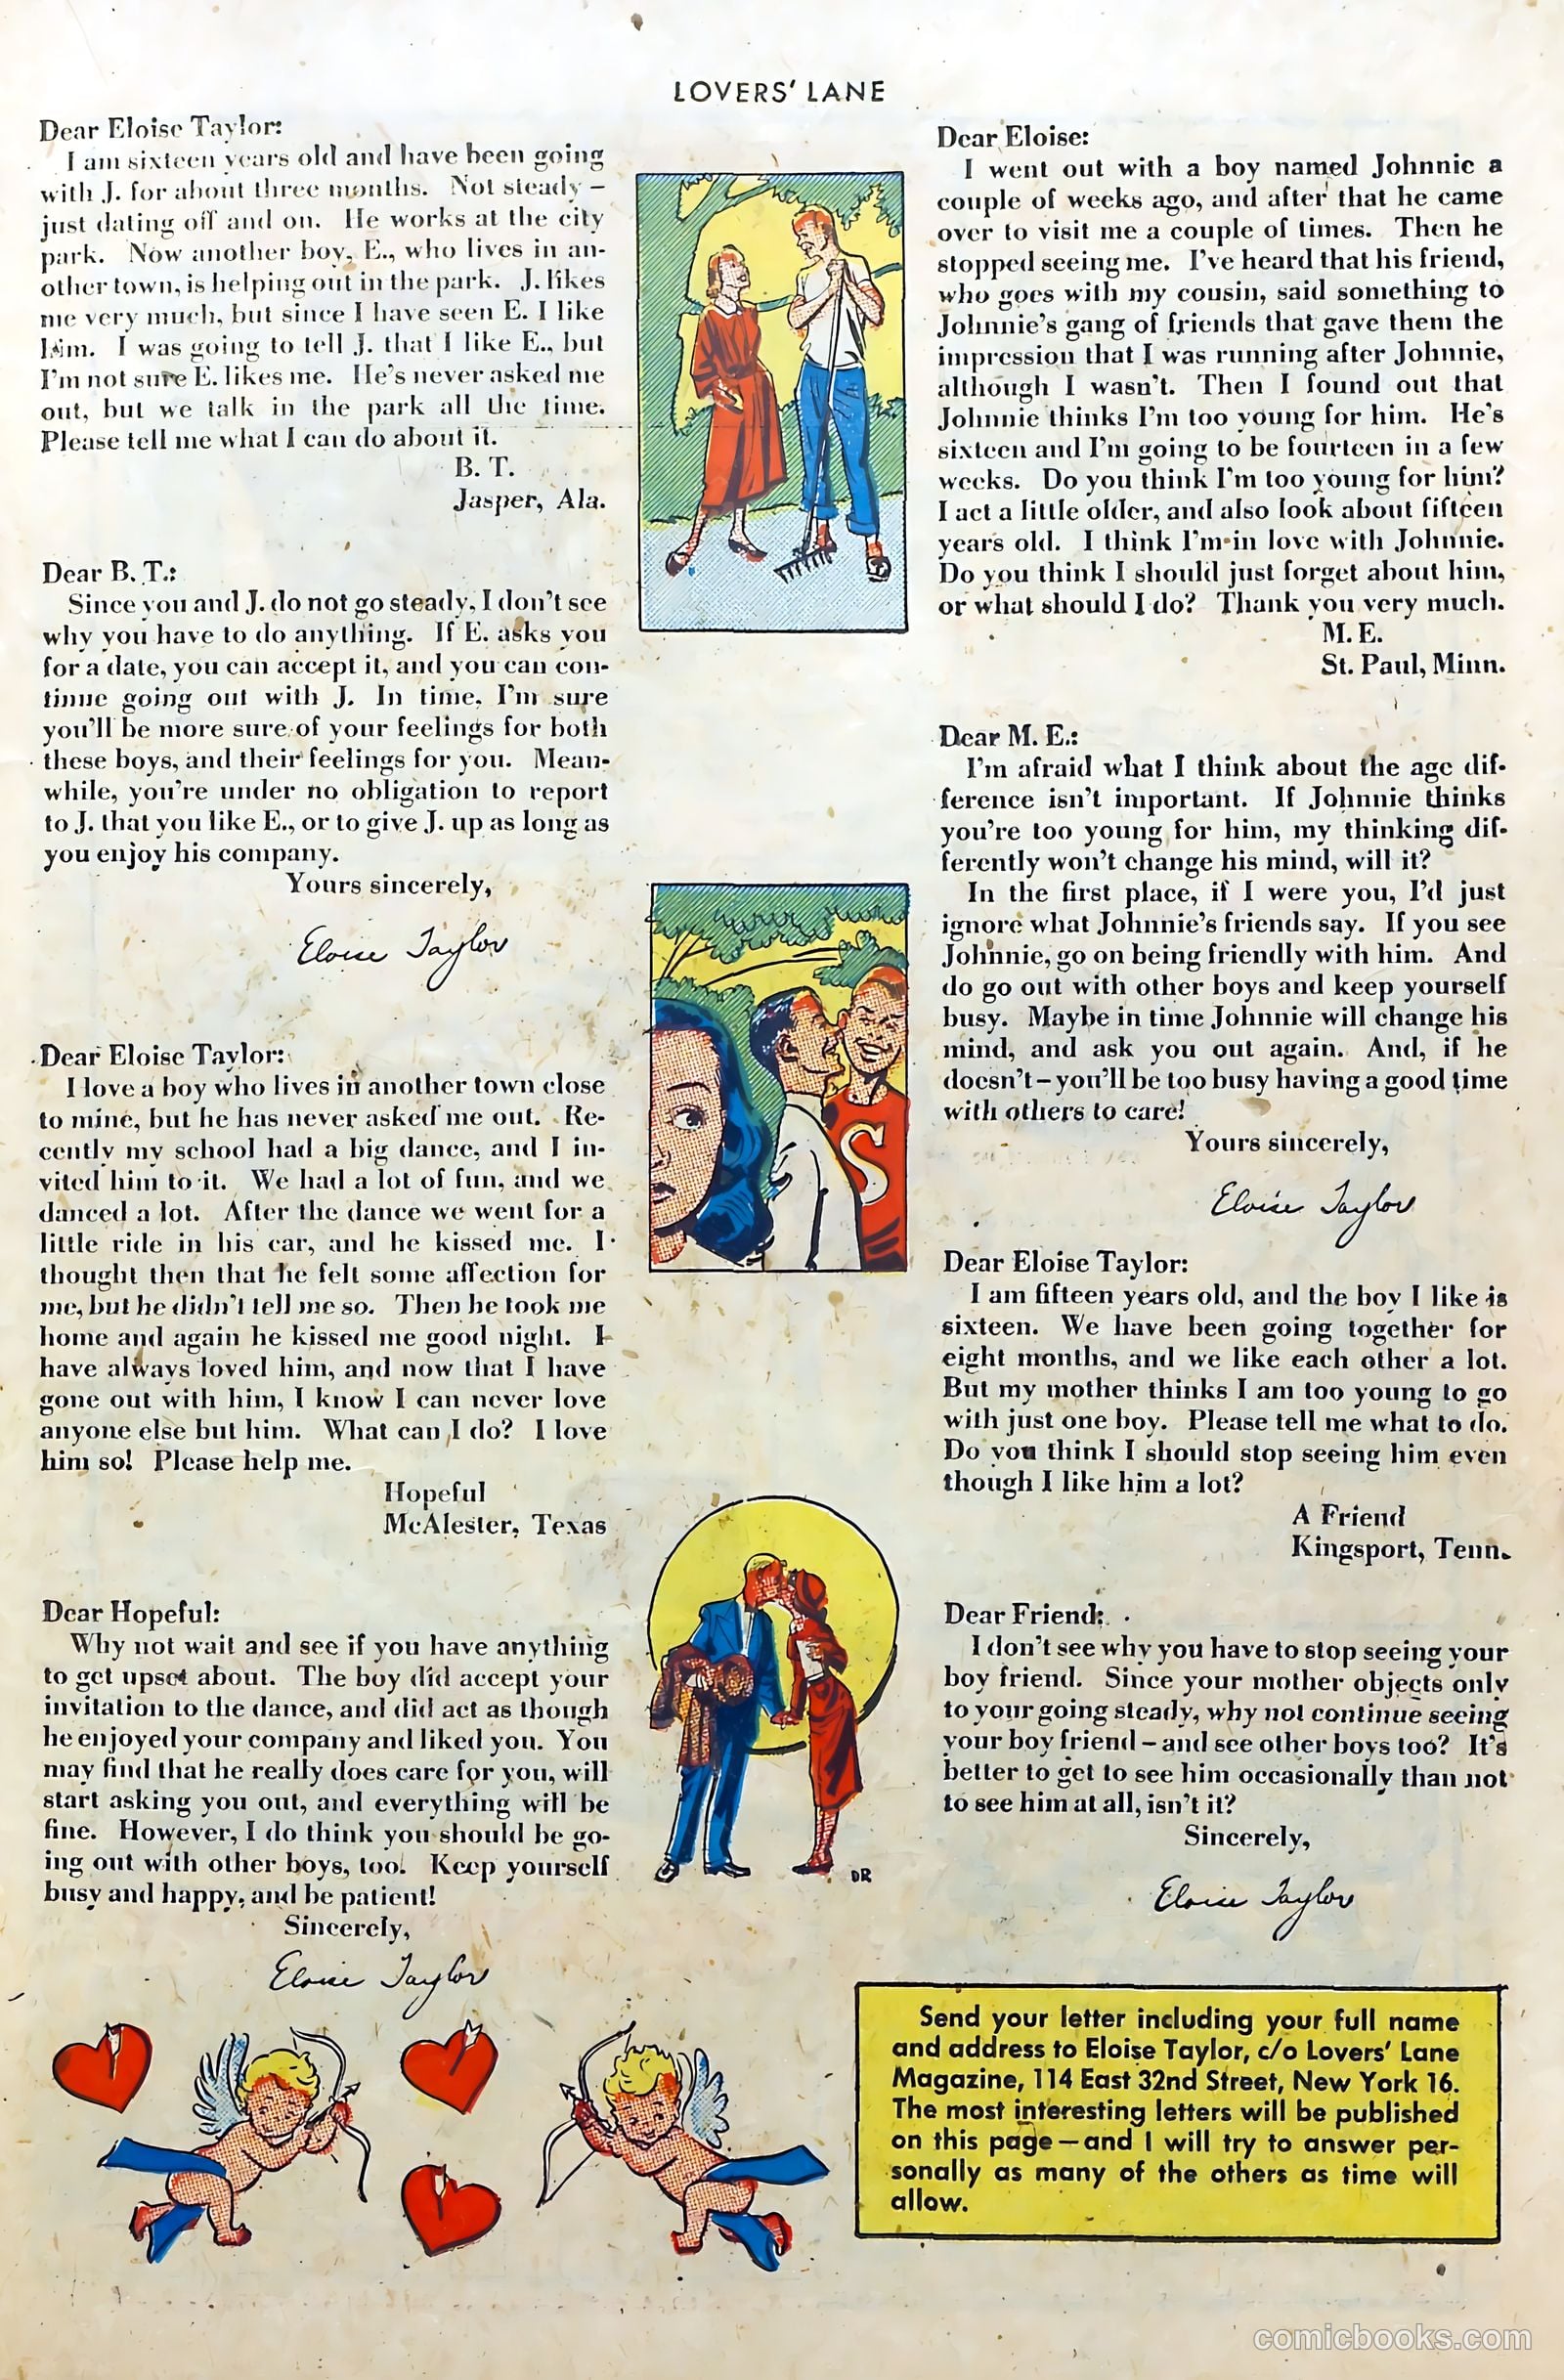 LOVERS' LANE
Dear Eloise Taylor:
I am sixteen years old and have been going
with J. for about three months. Not steady –
just dating off and on. He works at the city
park. Now another boy, E., who lives in an-
other town, is helping out in the park. J. likes
me very much, but since I have seen E. I like
him. I was going to tell J. that I like E., but
I'm not sure E. likes me. He's never asked me
out, but we talk in the park all the time.
Please tell me what I can do about it.
B. T.
Jasper, Ala.
Dear B. T.:
Since you and J. do not go steady, I don't see
why you have to do anything. If E. asks you
for a date, you can accept it, and you can con-
tinue going out with J. In time, I'm sure
you'll be more sure of your feelings for both
these boys, and their feelings for you. Mean-
while, you're under no obligation to report
to J. that you like E., or to give J. up as long as
you enjoy his company.
Yours sincerely,
Eloise Taylor
Dear Eloise Taylor:
I love a boy who lives in another town close
to mine, but he has never asked me out. Re-
cently my school had a big dance, and I in-
vited him to it. We had a lot of fun, and we
danced a lot. After the dance we went for a
little ride in his car, and he kissed me. I
thought then that he felt some affection for
me, but he didn't tell me so. Then he took me
home and again he kissed me good night. I
have always loved him, and now that I have
gone out with him, I know I can never love
anyone else but him. What can I do? I love
him so! Please help me.
Hopeful
McAlester, Texas
Dear Hopeful:
Why not wait and see if you have anything
to get upset about. The boy did accept your
invitation to the dance, and did act as though
he enjoyed your company and liked you. You
may find that he really does care for you, will
start asking you out, and everything will be
fine. However, I do think you should be go-
ing out with other boys, too. Keep yourself
busy and happy, and be patient!
Sincerely,
Eloise Taylor
S
DR
Dear Eloise:
I went out with a boy named Johnnie a
couple of weeks ago, and after that he came
over to visit me a couple of times. Then he
stopped seeing me. I've heard that his friend,
who goes with my cousin, said something to
Johnnie's gang of friends that gave them the
impression that I was running after Johnnie,
although I wasn't. Then I found out that
Johnnie thinks I'm too young for him. He's
sixteen and I'm going to be fourteen in a few
weeks. Do you think I'm too young for him?
I act a little older, and also look about fifteen
years old. I think I'm in love with Johnnie.
Do you think I should just forget about him,
or what should I do? Thank you very much.
M. E.
St. Paul, Minn.
Dear M. E.:
I'm afraid what I think about the age dif-
ference isn't important. If Johnnie thinks
you're too young for him, my thinking dif-
ferently won't change his mind, will it?
In the first place, if I were you, I'd just
ignore what Johnnie's friends say. If you see
Johnnie, go on being friendly with him. And
do go out with other boys and keep yourself
busy. Maybe in time Johnnie will change his
mind, and ask you out again. And, if he
doesn't – you'll be too busy having a good time
with others to care!
Yours sincerely,
Eloise Taylor
Dear Eloise Taylor:
I am fifteen years old, and the boy I like is
sixteen. We have been going together for
eight months, and we like each other a lot.
But my mother thinks I am too young to go
with just one boy. Please tell me what to do.
Do you think I should stop seeing him even
though I like him a lot?
A Friend
Kingsport, Tenn.
Dear Friend:
I don't see why you have to stop seeing your
boy friend. Since your mother objects only
to your going steady, why not continue seeing
your boy friend – and see other boys too? It's
better to get to see him occasionally than not
to see him at all, isn't it?
Sincerely,
Eloise Taylor
Send your letter including your full name
and address to Eloise Taylor, c/o Lovers' Lane
Magazine, 114 East 32nd Street, New York 16.
The most interesting letters will be published
on this page – and I will try to answer per-
sonally as many of the others as time will
allow.
comicbooks.com